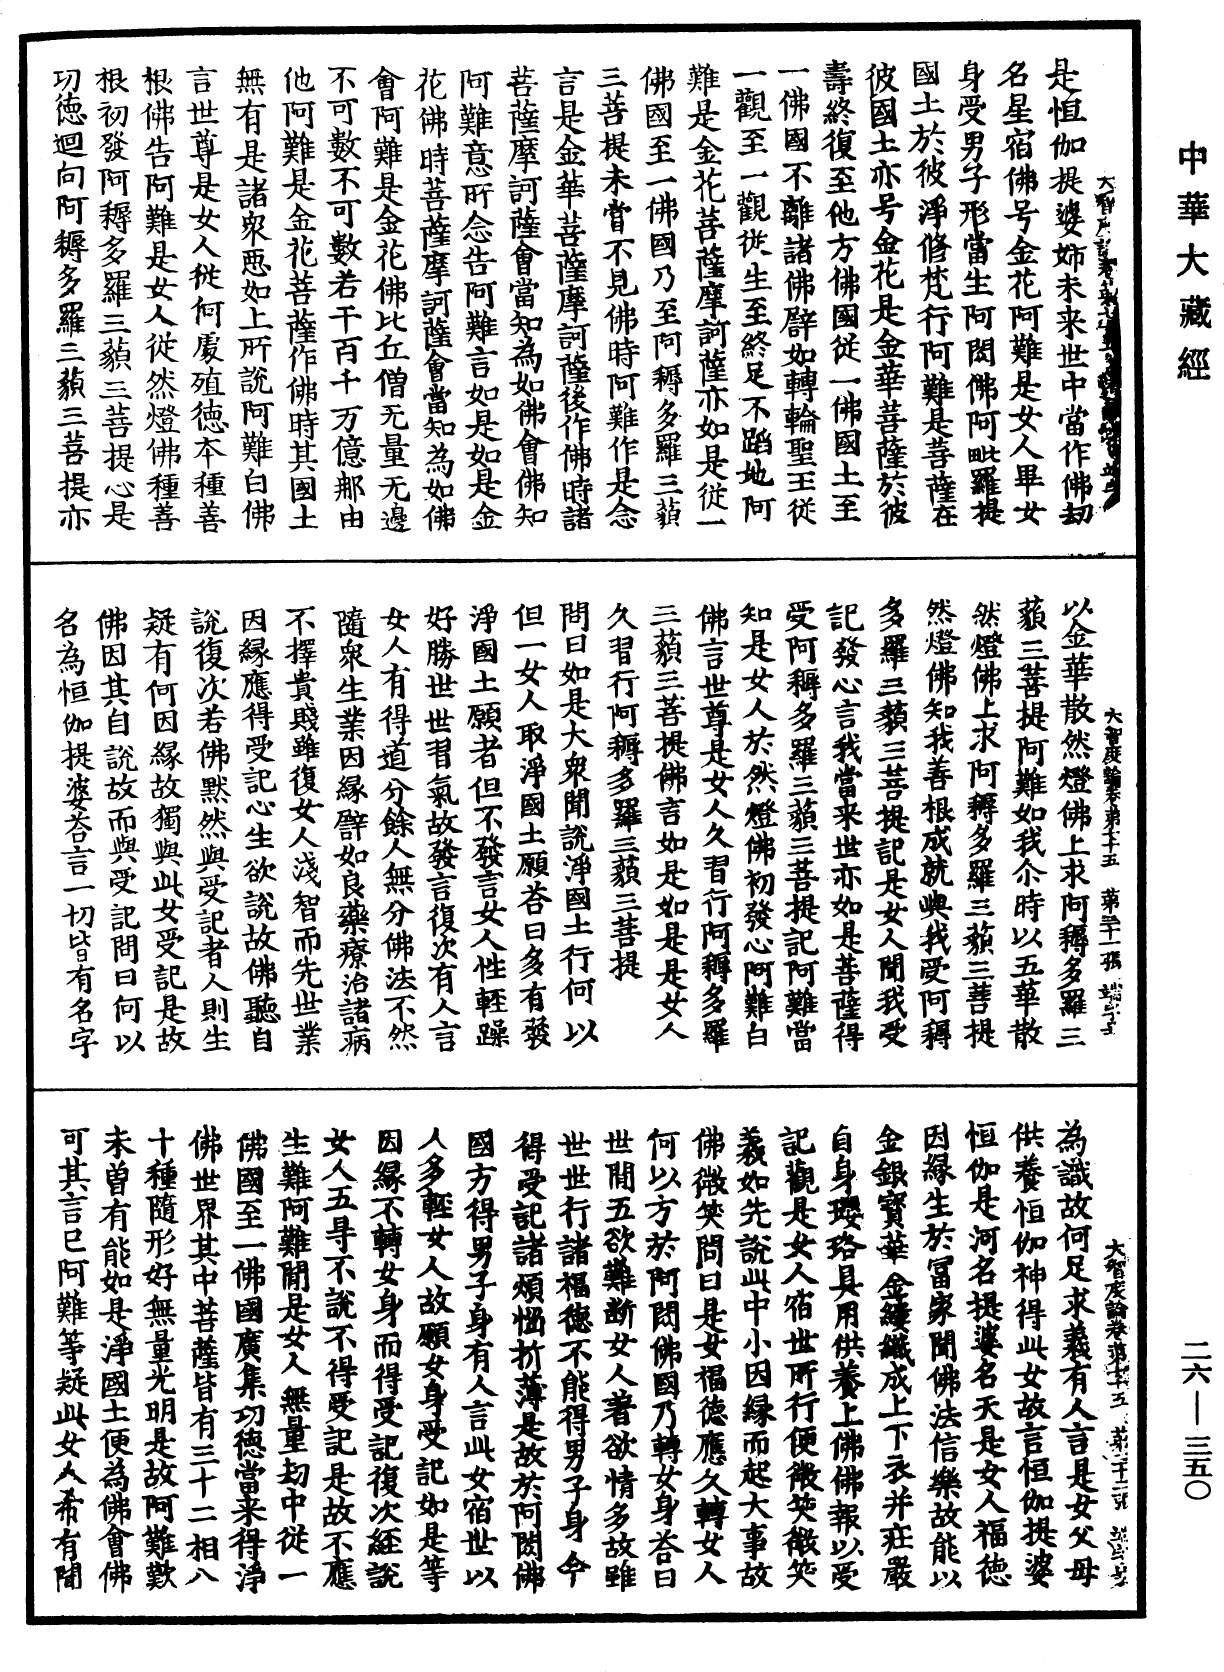 中華大藏經
是恒伽提婆姉未来世中當作佛劫
名星宿佛号金花阿難是女人畢女
身受男子形當生阿閦佛阿毗羅提
國土於彼淨修梵行阿難是菩薩在
彼國土亦号金花是金華菩薩於彼
壽終復至他方佛國從一佛國土至
一佛國不離諸佛譬如轉輪聖王從
一觀至一觀從生至終足不蹈地阿
難是金花菩薩摩訶薩亦如是從一
佛國至一佛國乃至阿耨多羅三藐
三菩提未甞不見佛時阿難作是念
言是金華菩薩摩訶薩後作佛時諸
菩薩摩訶薩會當知為如佛會佛知
阿難意所念告阿難言如是如是金
花佛時菩薩摩訶薩會當知為如佛
會阿難是金花佛比丘僧无量无邊
不可數不可數若干百千万億那由
他阿難是金花菩薩作佛時其國土
無有是諸衆惡如上所說阿難白佛
言世尊是女人從何處殖德本種善
根佛告阿難是女人從然燈佛種善
根初發阿耨多羅三藐三菩提心是
功德迴向阿耨多羅三藐三菩提亦
大智度論卷第七十五　第三十一張　端字号
以金華散然燈佛上求阿耨多羅三
藐三菩提阿難如我尒時以五華散
然燈佛上求阿耨多羅三藐三菩提
然燈佛知我善根成就與我受阿耨
多羅三藐三菩提記是女人聞我受
記發心言我當来世亦如是菩薩得
受阿耨多羅三藐三菩提記阿難當
知是女人於然燈佛初發心阿難白
佛言世尊是女人久習行阿耨多羅
三藐三菩提佛言如是如是是女人
久習行阿耨多羅三藐三菩提
問曰如是大衆聞說淨國土行何以
但一女人取淨國土願荅曰多有發
淨國土願者但不發言女人性輕躁
好勝世世習氣故發言復次有人言
女人有得道分餘人無分佛法不然
隨衆生業因緣譬如良藥療治諸病
不擇貴賤雖復女人淺智而先世業
因緣應得受記心生欲說故佛聽自
說復次若佛默然與受記者人則生
疑有何因緣故獨與此女受記是故
佛因其自說故而與受記問曰何以
名為恒伽提婆荅言一切皆有名字
大智度論卷第七十五　第三十二張　端字号
為識故何足求義有人言是女父母
供養恒伽神得此女故言恒伽提婆
恒伽是河名提婆名天是女人福德
因緣生於冨家聞佛法信樂故能以
金銀寳華金縷織成上下衣并莊嚴
自身瓔珞具用供養上佛佛報以受
記觀是女人宿世所行便微笑微笑
義如先說此中小因緣而起大事故
佛微笑問曰是女福德應久轉女人
何以方於阿閦佛國乃轉女身荅曰
世間五欲難斷女人著欲情多故雖
世世行諸福德不能得男子身今
得受記諸煩惱折薄是故於阿閦佛
國方得男子身有人言此女宿世以
人多輕女人故願女身受記如是等
因緣不轉女身而得受記復次經說
女人五㝵不說不得受記是故不應
生難阿難聞是女人無量劫中從一
佛國至一佛國廣集功德當来得淨
佛世界其中菩薩皆有三十二相八
十種隨形好無量光明是故阿難歎
未曽有能如是淨國土便為佛會佛
可其言已阿難等疑此女人希有聞
二六—三五〇